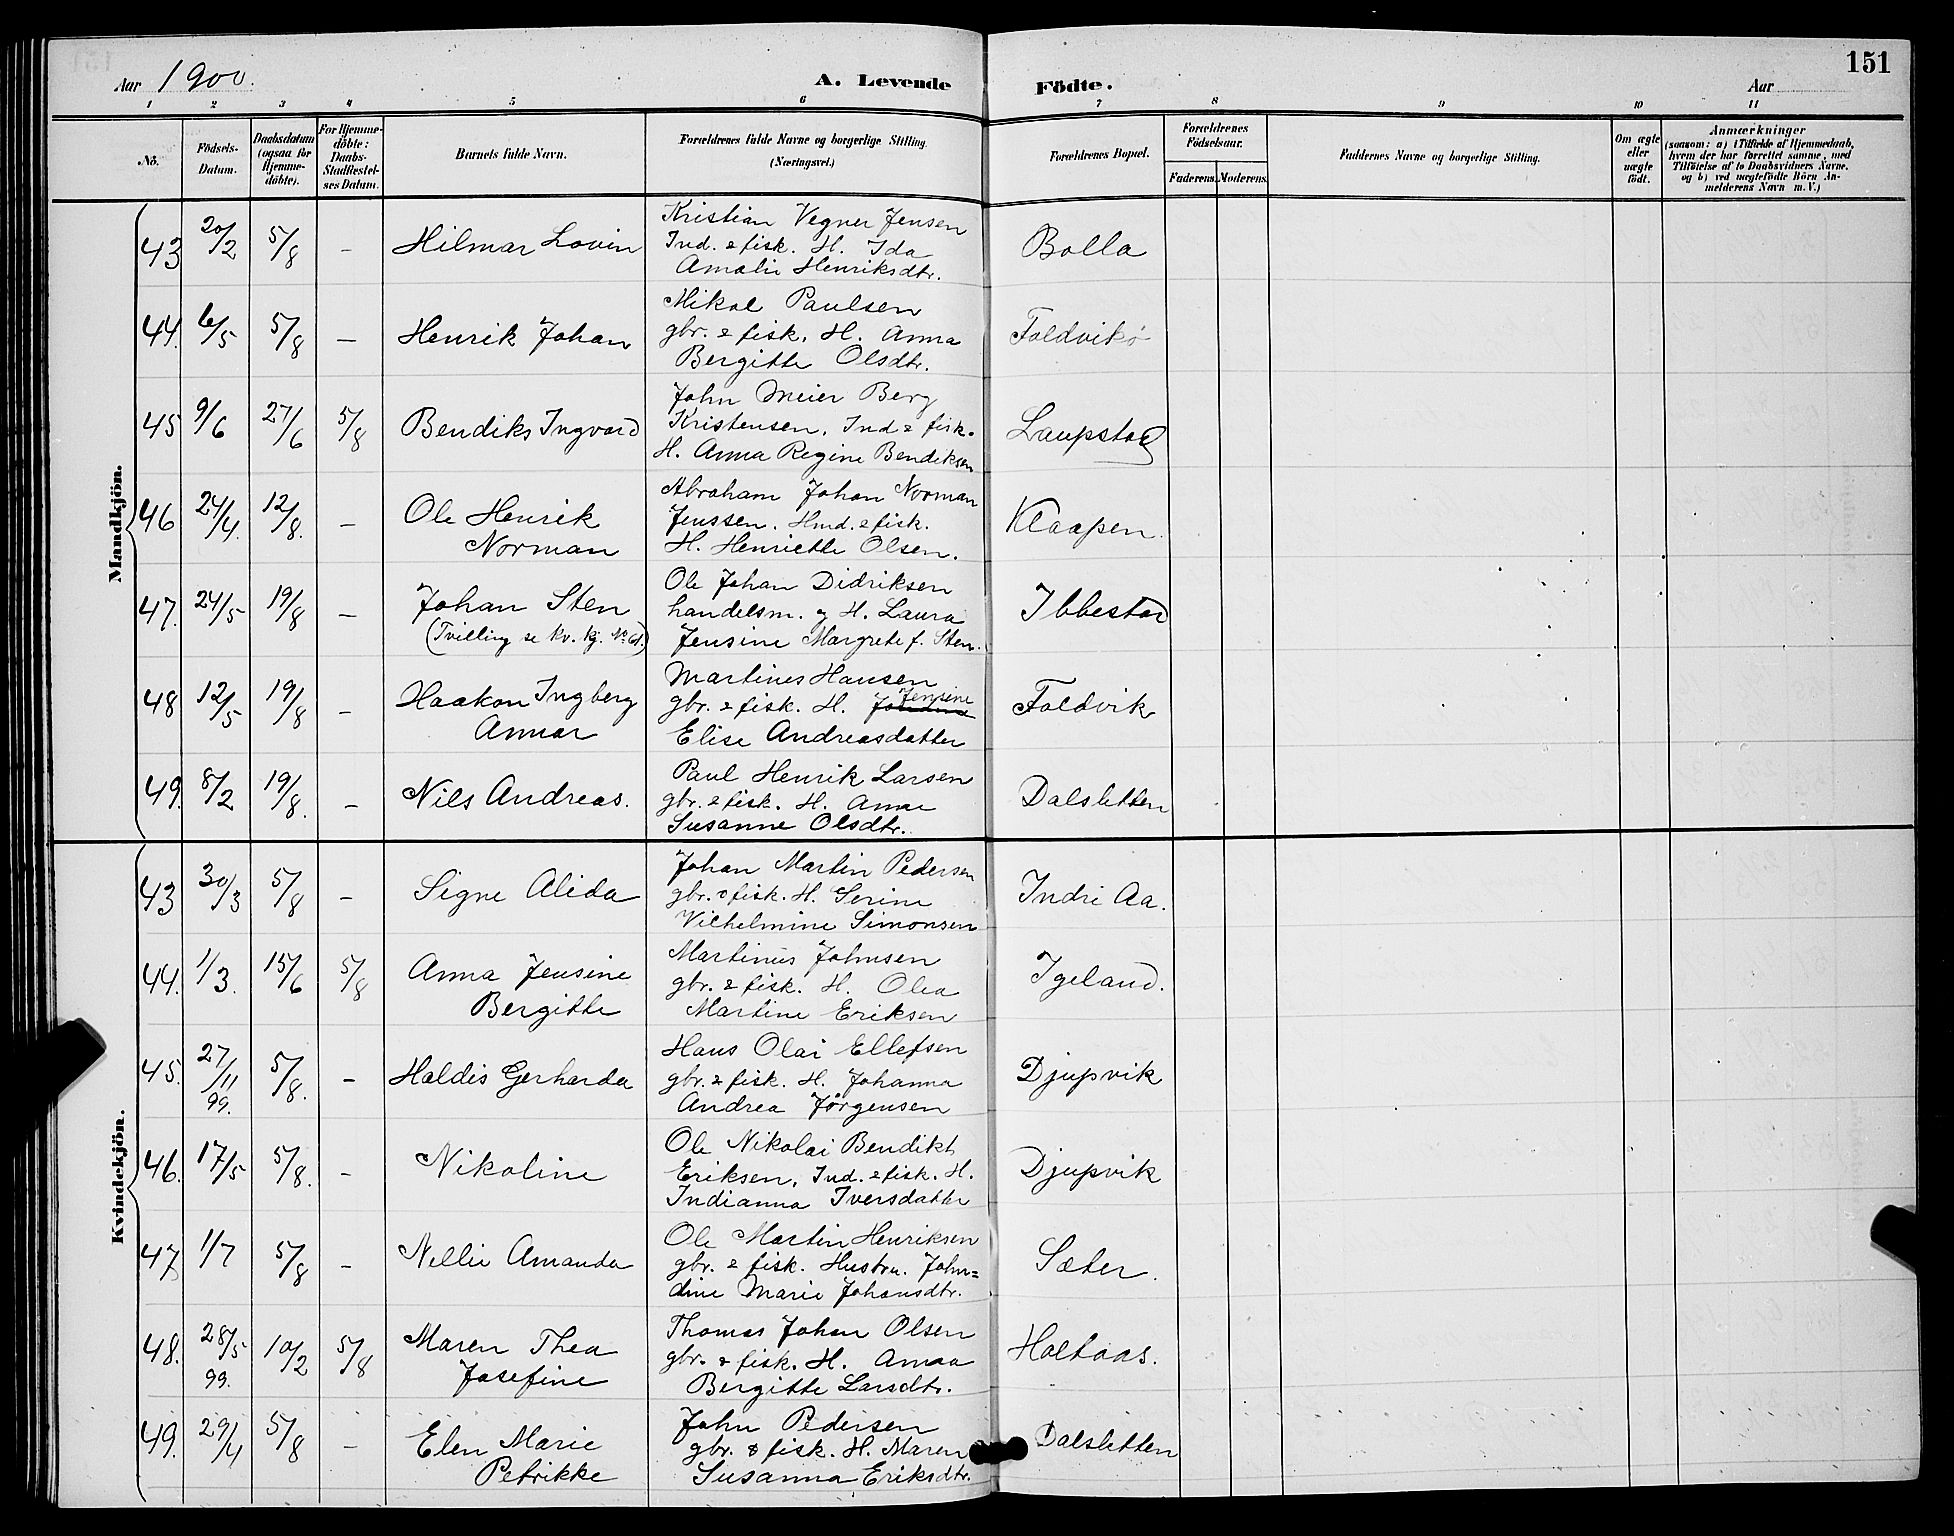 151
Aar 1900.
A. Levende Födte.
Aar
1 2 3 4 5 6 7 8 9 10 11
No.
Födsels-Datum.
Daabsdatum (ogsaa for Hjemme-döbte).
For Hjemme-döbte: Daabs-Stadfæstel-ses Datum.
Barnets fulde Navn.
Forældrenes fulde Navne og borgerlige Stilling. (Næringsvei.)
Forældrenes Bopæl.
Forældrenes Födselsaar.
Faderens. Moderens.
Faddernes Navne og borgerlige Stilling.
Om ægte eller uægte födt.
Anmærkninger
(saasom: a) i Tilfælde af Hjemmedaab,
hvem der har forrettet samme, med
Tilföielse af to Daabsvidners Navne.
og b) ved uægtefödte Börn An-
melderens Navn m. V.)
Mandkjön.
43 20/2 5/8 - Hilmar Lovin
Kristian Vegner Jensen
Ind. & fisk. H. Ida
Amalie Henriksdtr.
Bolla
44. 6/5 5/8 - Henrik Johan
Mikal Paulsen
gbr. & fisk. H. Anna
Bergitte Olsdtr.
Foldvik
45 9/6 27/6 5/8 Bendiks Ingvard
John Meier Berg
Kristensen, Ind & fisk.
H. Anna Regine Bendiksen
Laupstad
46 24/4. 12/8. - Ole Henrik
Norman
Abraham Johan Norman
Jenssen. Hmd. & fisk.
H. Henriette Olsen.
Klaapen.
47. 24/5 19/8 - Johan Sten
(Tvilling se kv. kj. No 61.)
Ole Johan Didriksen
handelsm. og H. Laura
Jensine Margrete f. Sten.
Ibbestad
48 12/5 19/8 - Haakon Ingberg
Annar
Martines Hansen
gbr. & fisk. H. Jensine
Elise Andreasdatter
Foldvik
49. 8/2 19/8. - Nils Andreas.
Paul Henrik Larsen
gbr. & fisk. H. Anne
Susanne Olsdtr.
Dalsletten
Kvindekjön.
43 30/3 5/8 - Signe Alida
Johan Martin Pedersen
gbr. & fisk. H. Serine
Vilhelmine Simonsen
Indri Aa.
44. 1/3. 15/6 5/8 Anna Jensine
Bergitte
Martinus Johnsen
gbr. & fisk. H. Olea
Martine Eriksen
Igeland.
45. 27/11 99. 5/8. - Haldis Gerharda
Hans Olai Ellefsen
gbr. & fisk. H. Johanna
Andrea Jørgensen
Djupvik
46. 17/5 5/8. - Nikoline
Ole Nikolai Bendikt
Eriksen, Ind. & fisk. H.
Indianna Iversdatter
Djupvik
47 1/7 5/8 - Nellie Amanda
Ole Martin Henriksen
gbr. & fisk. Hustru. John=
dine Marie Johansdtr.
Sæter.
48. 28/5 99. 10/2 5/8 Maren Thea
Josefine
Thomas Johan Olsen
gbr. & fisk. H. Anna
Bergitte Larsdtr.
Holtaas.
49. 29/4 5/8 - Elen Marie
Petrikke
John Pedersen
gbr. & fisk. H. Maren
Susanna Eriksdtr.
Dalsletten